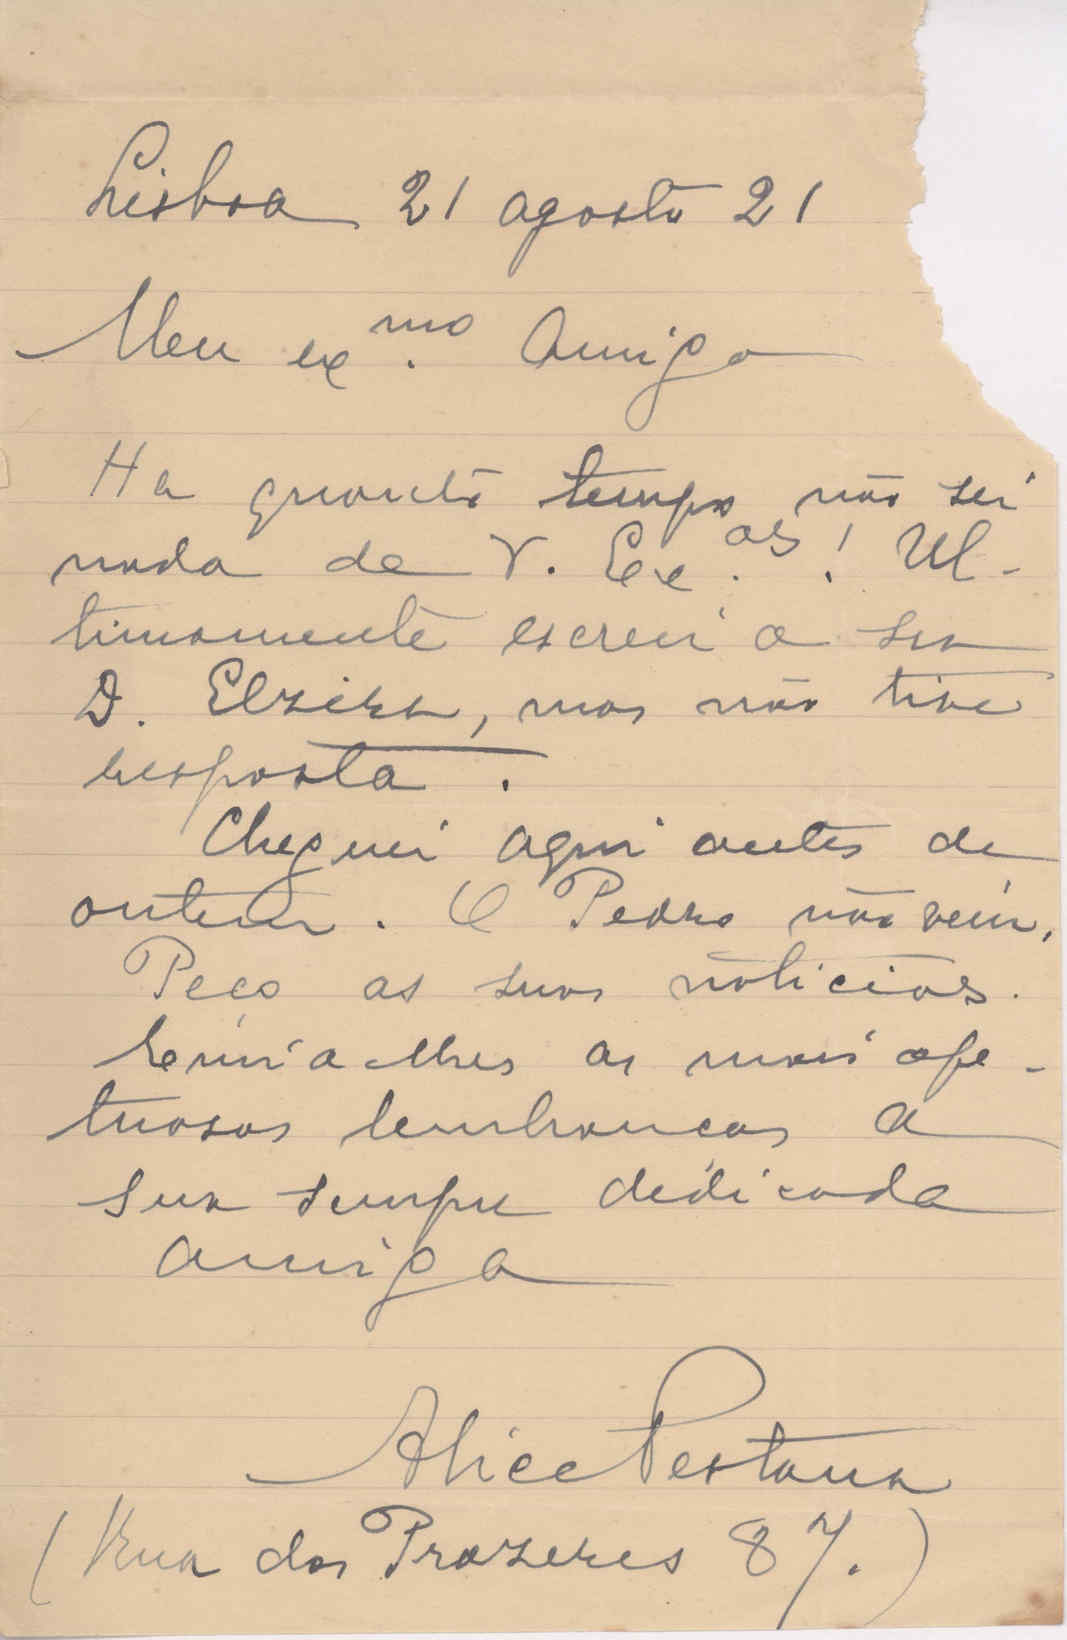 Lisboa 21 agosto 21
Meu ex.mo Amigo
Ha quanto tempo não sei
nada de V. Ex.as! Ul-
timamente escrevi a sra
D. Elzira, mas não tive
resposta.
Cheguei aqui antes de
ontem. O Pedro não vem.
Peço as suas noticias.
Envia-lhes as mais afe-
tuosas lembranças a
sua sempre dedicada
amiga
Alice Pestana
(Rua dos Prazeres 87.)